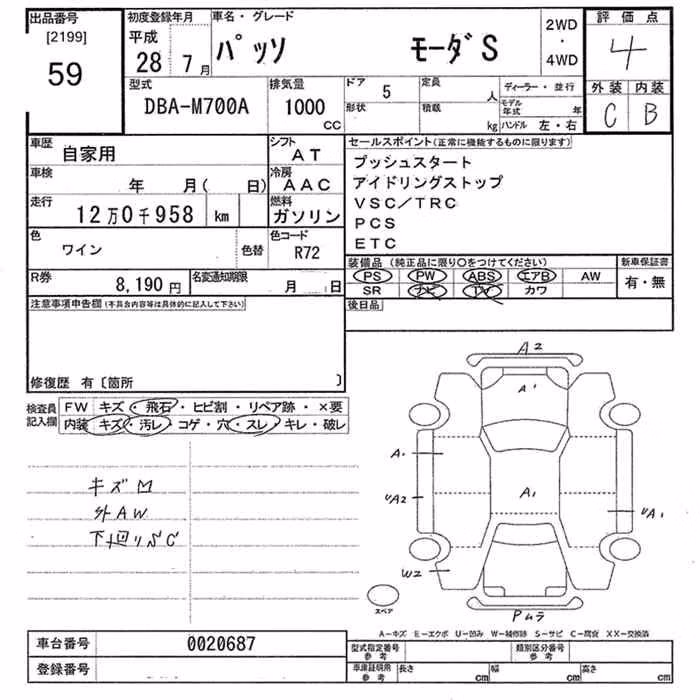 出品番号
[2199]
59
初度登録年月
平成
28年7月
車名・グレード
パッソ モーダS
2WD
・
4WD
評価点
4
外装 内装
C B
型式
DBA-M700A
排気量
1000
CC
ドア 5
形状
定員 人
積載 kg
ディーラー・並行
モデル年式 年
ハンドル 左・右
車歴
自家用
シフト
AT
車検
年 月( 日)
冷房
AAC
走行
12万0千958 km
燃料
ガソリン
色
ワイン
色替
色コード
R72
R券
8,190円
名変通知期限
月 日
セールスポイント(正常に機能するものに限ります)
プッシュスタート
アイドリングストップ
VSC/TRC
PCS
ETC
装備品(純正品に限り○をつけてください)
PS PW ABS エアB AW
SR ナビ TV カワ
新車保証書
有・無
後日品
注意事項申告欄(不具合内容等は具体的に記入して下さい)
修復歴 有〔箇所 〕
検査員記入欄
FW キズ・飛石・ヒビ割・リペア跡・×要
内装 キズ・汚レ・コゲ・穴・スレ・キレ・破レ
キズ凹
外AW
下廻りSC
A2
A1
A1
A1
UA2
UA1
W2
Pムラ
スペア
A-キズ E-エクボ U-凹み W-補修跡 S-サビ C-腐食 XX-交換済
車台番号 0020687
登録番号
型式指定番号 参考
類別区分番号 参考
車庫証明用 参考
長さ cm 幅 cm 高さ cm